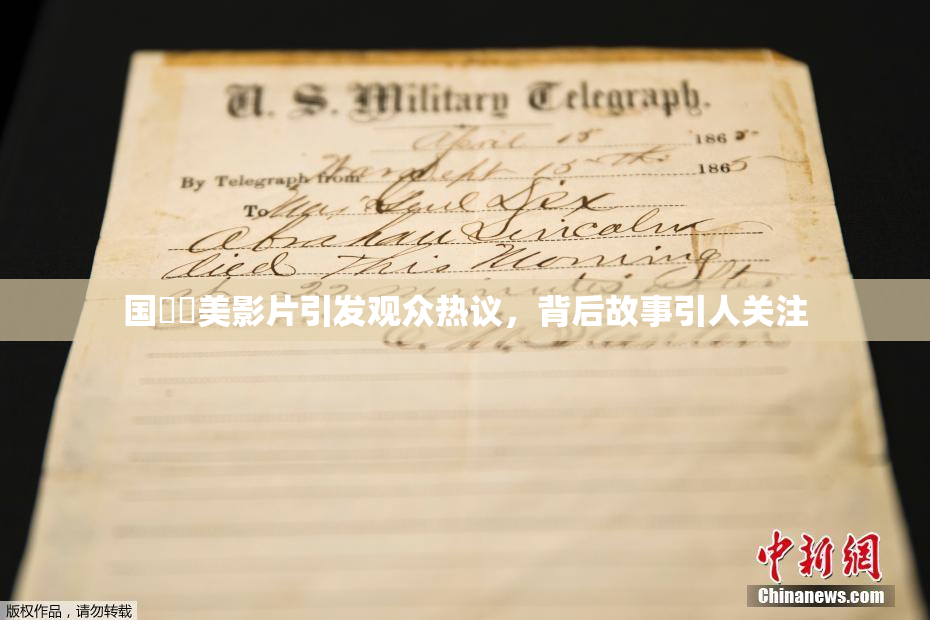 U. S. Military Telegraph.
April 15 1865
By Telegraph from War Dept 15th 1865
To Maj Genl Dix
Abraham Lincoln
died This Morning
22 minutes after
国美影片引发观众热议，背后故事引人关注
Stanton
中新网
Chinanews.com
版权作品，请勿转载